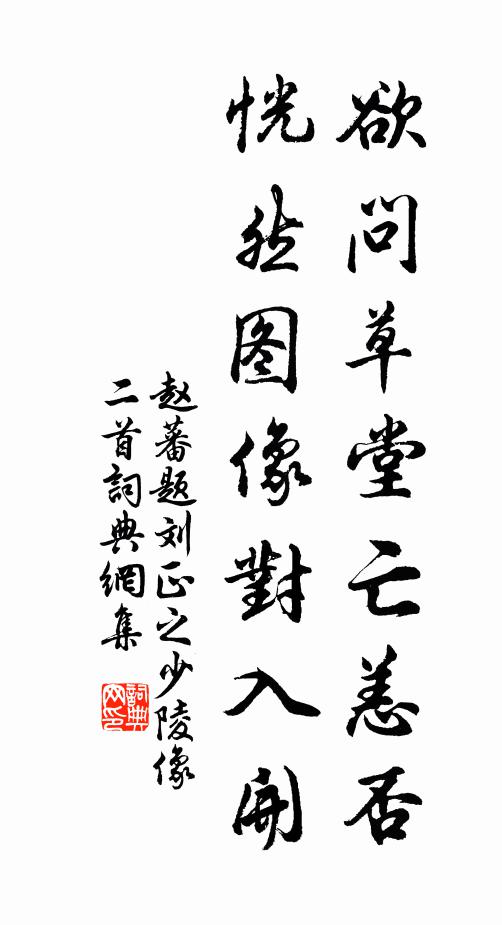 欲问草堂亡恙否
恍然图像對入開
赵蕃题刘正之少陵像
二首詞典網集
詞典
网印